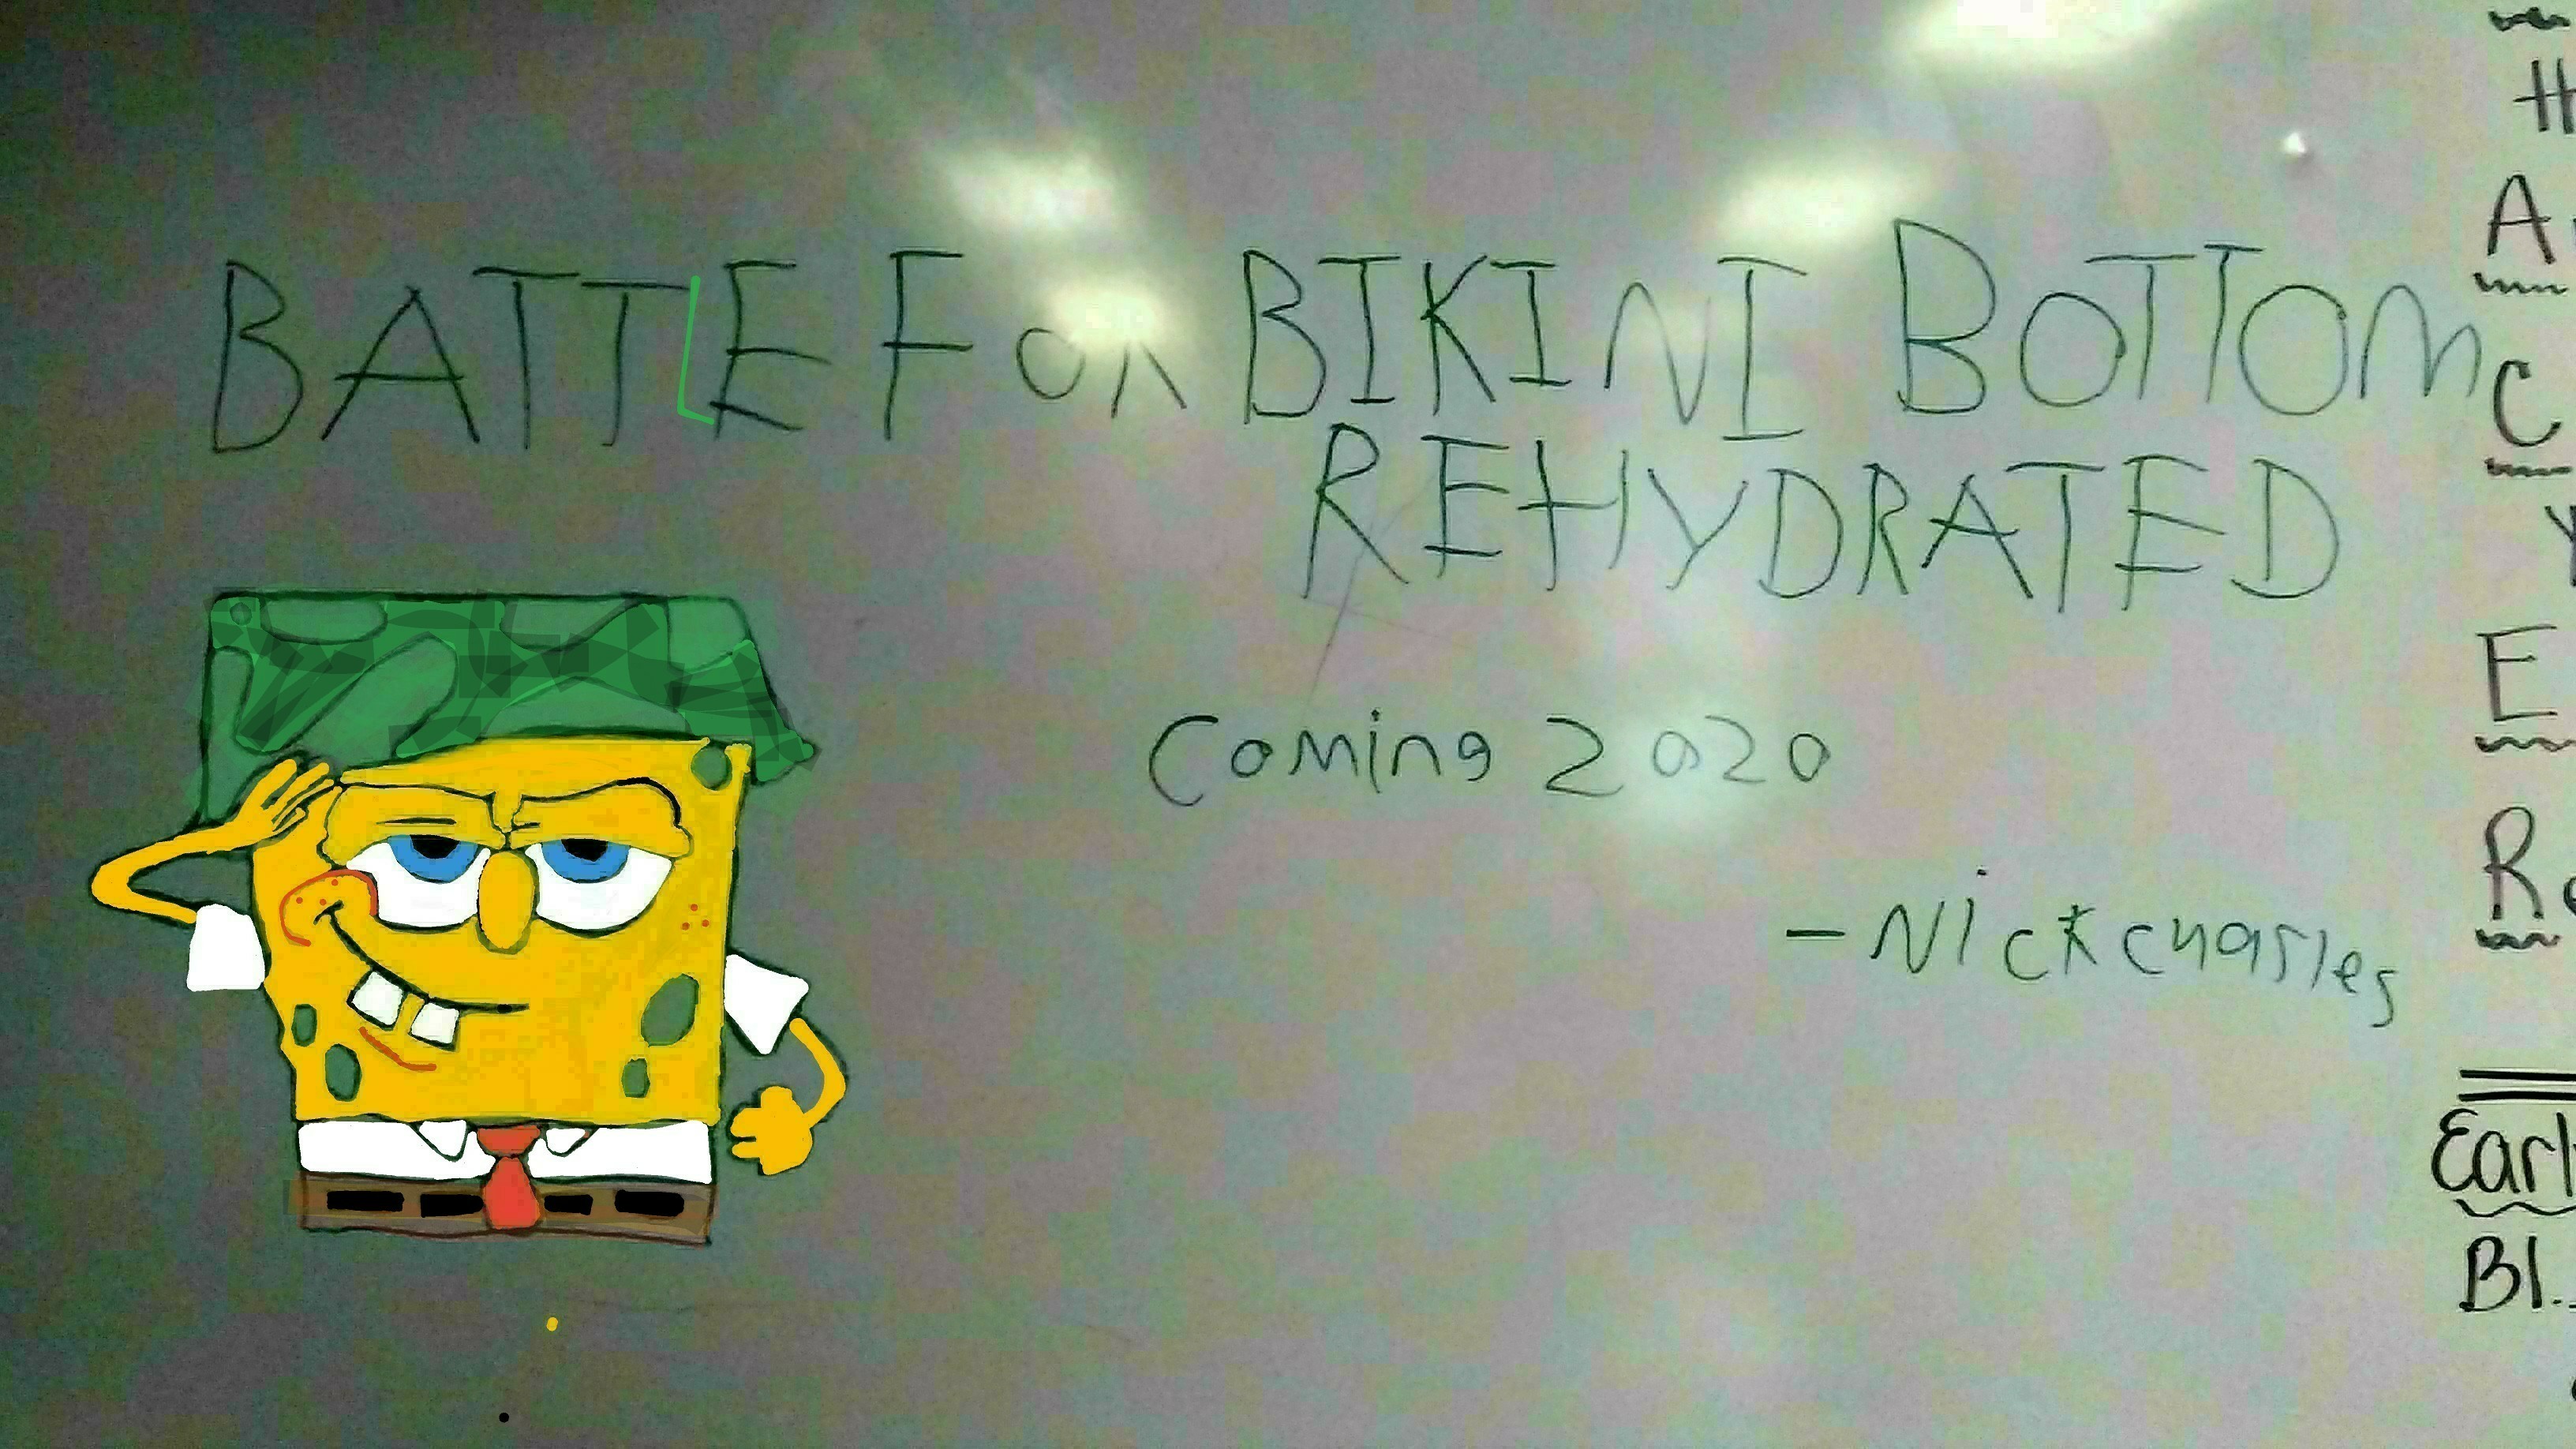 BATTLE FOR BIKINI BOTTOM
REHYDRATED
Coming 2020
- Nickcharles
A
C
E
R
Early
Bl..